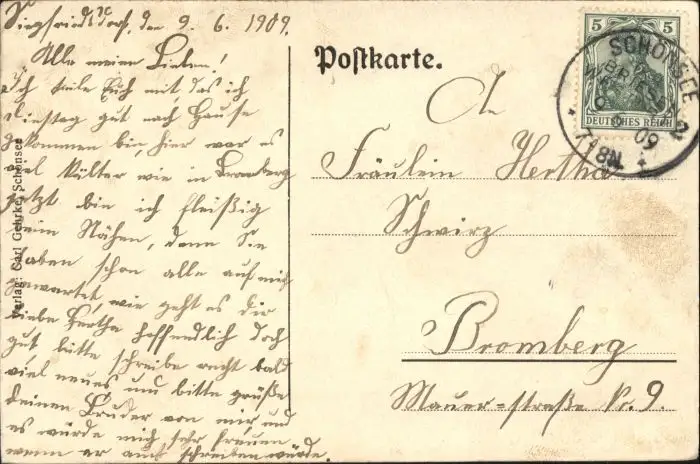 Siegfriedsdorf, den 9. 6. 1909.
Alle meine Lieben!
Ich teile Euch mit, das ich
Dienstag gut nach Hause
gekommen bin, hier war es
viel kälter wie in Bromberg
jetzt bin ich fleißig
beim Nähen, denn Sie
haben schon alle auf mich
gewartet, wie geht es dir
liebe Hertha hoffendlich doch
gut bitte schreibe recht bald
viel neues und bitte grüße
deinen Bruder von mir und
es würde mich sehr freuen
wenn er auch schreiben würde.
Verlag: Carl Gehrke, Schönsee
Postkarte.
An
Fräulein Hertha
Schwirz
Bromberg
Mauer=straße No. 9.
5 5
DEUTSCHES REICH
SCHÖNSEE
BRIESEN
9 6 09
7-8N